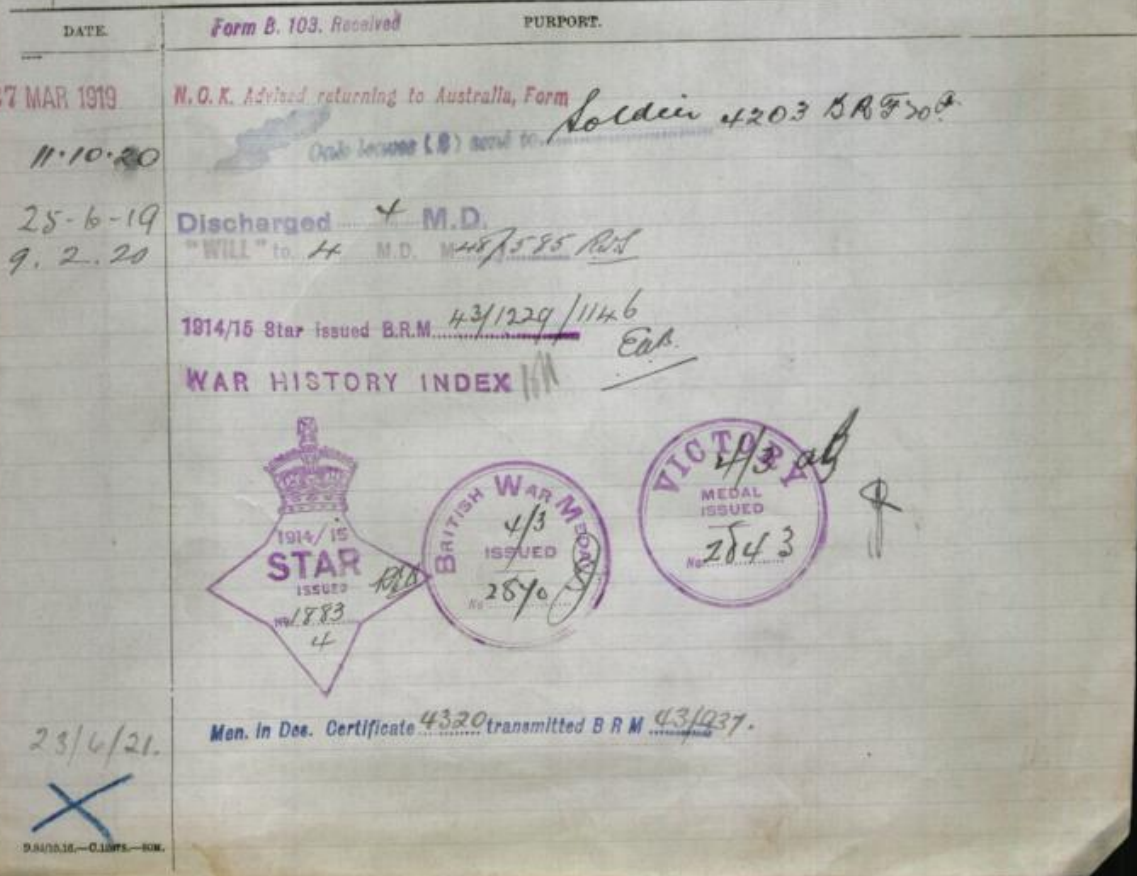 DATE. Form B. 103. Received PURPORT.
27 MAR 1919 N.O.K. Advised returning to Australia, Form
11·10·20 Oak leaves (8) send to Soldier 4203 BR
25-6-19 Discharged 4 M.D.
9.2.20 "WILL" to 4 M.D.
1914/15 Star issued B.R.M 43/1229/1146
WAR HISTORY INDEX
1914/15
STAR
ISSUED
No 1883
4
BRITISH WAR MEDAL
4/3
ISSUED
No 2870
VICTORY
4/3
MEDAL
ISSUED
No 2843
23/6/21. Men. in Des. Certificate 4320 transmitted B R M 43/937.